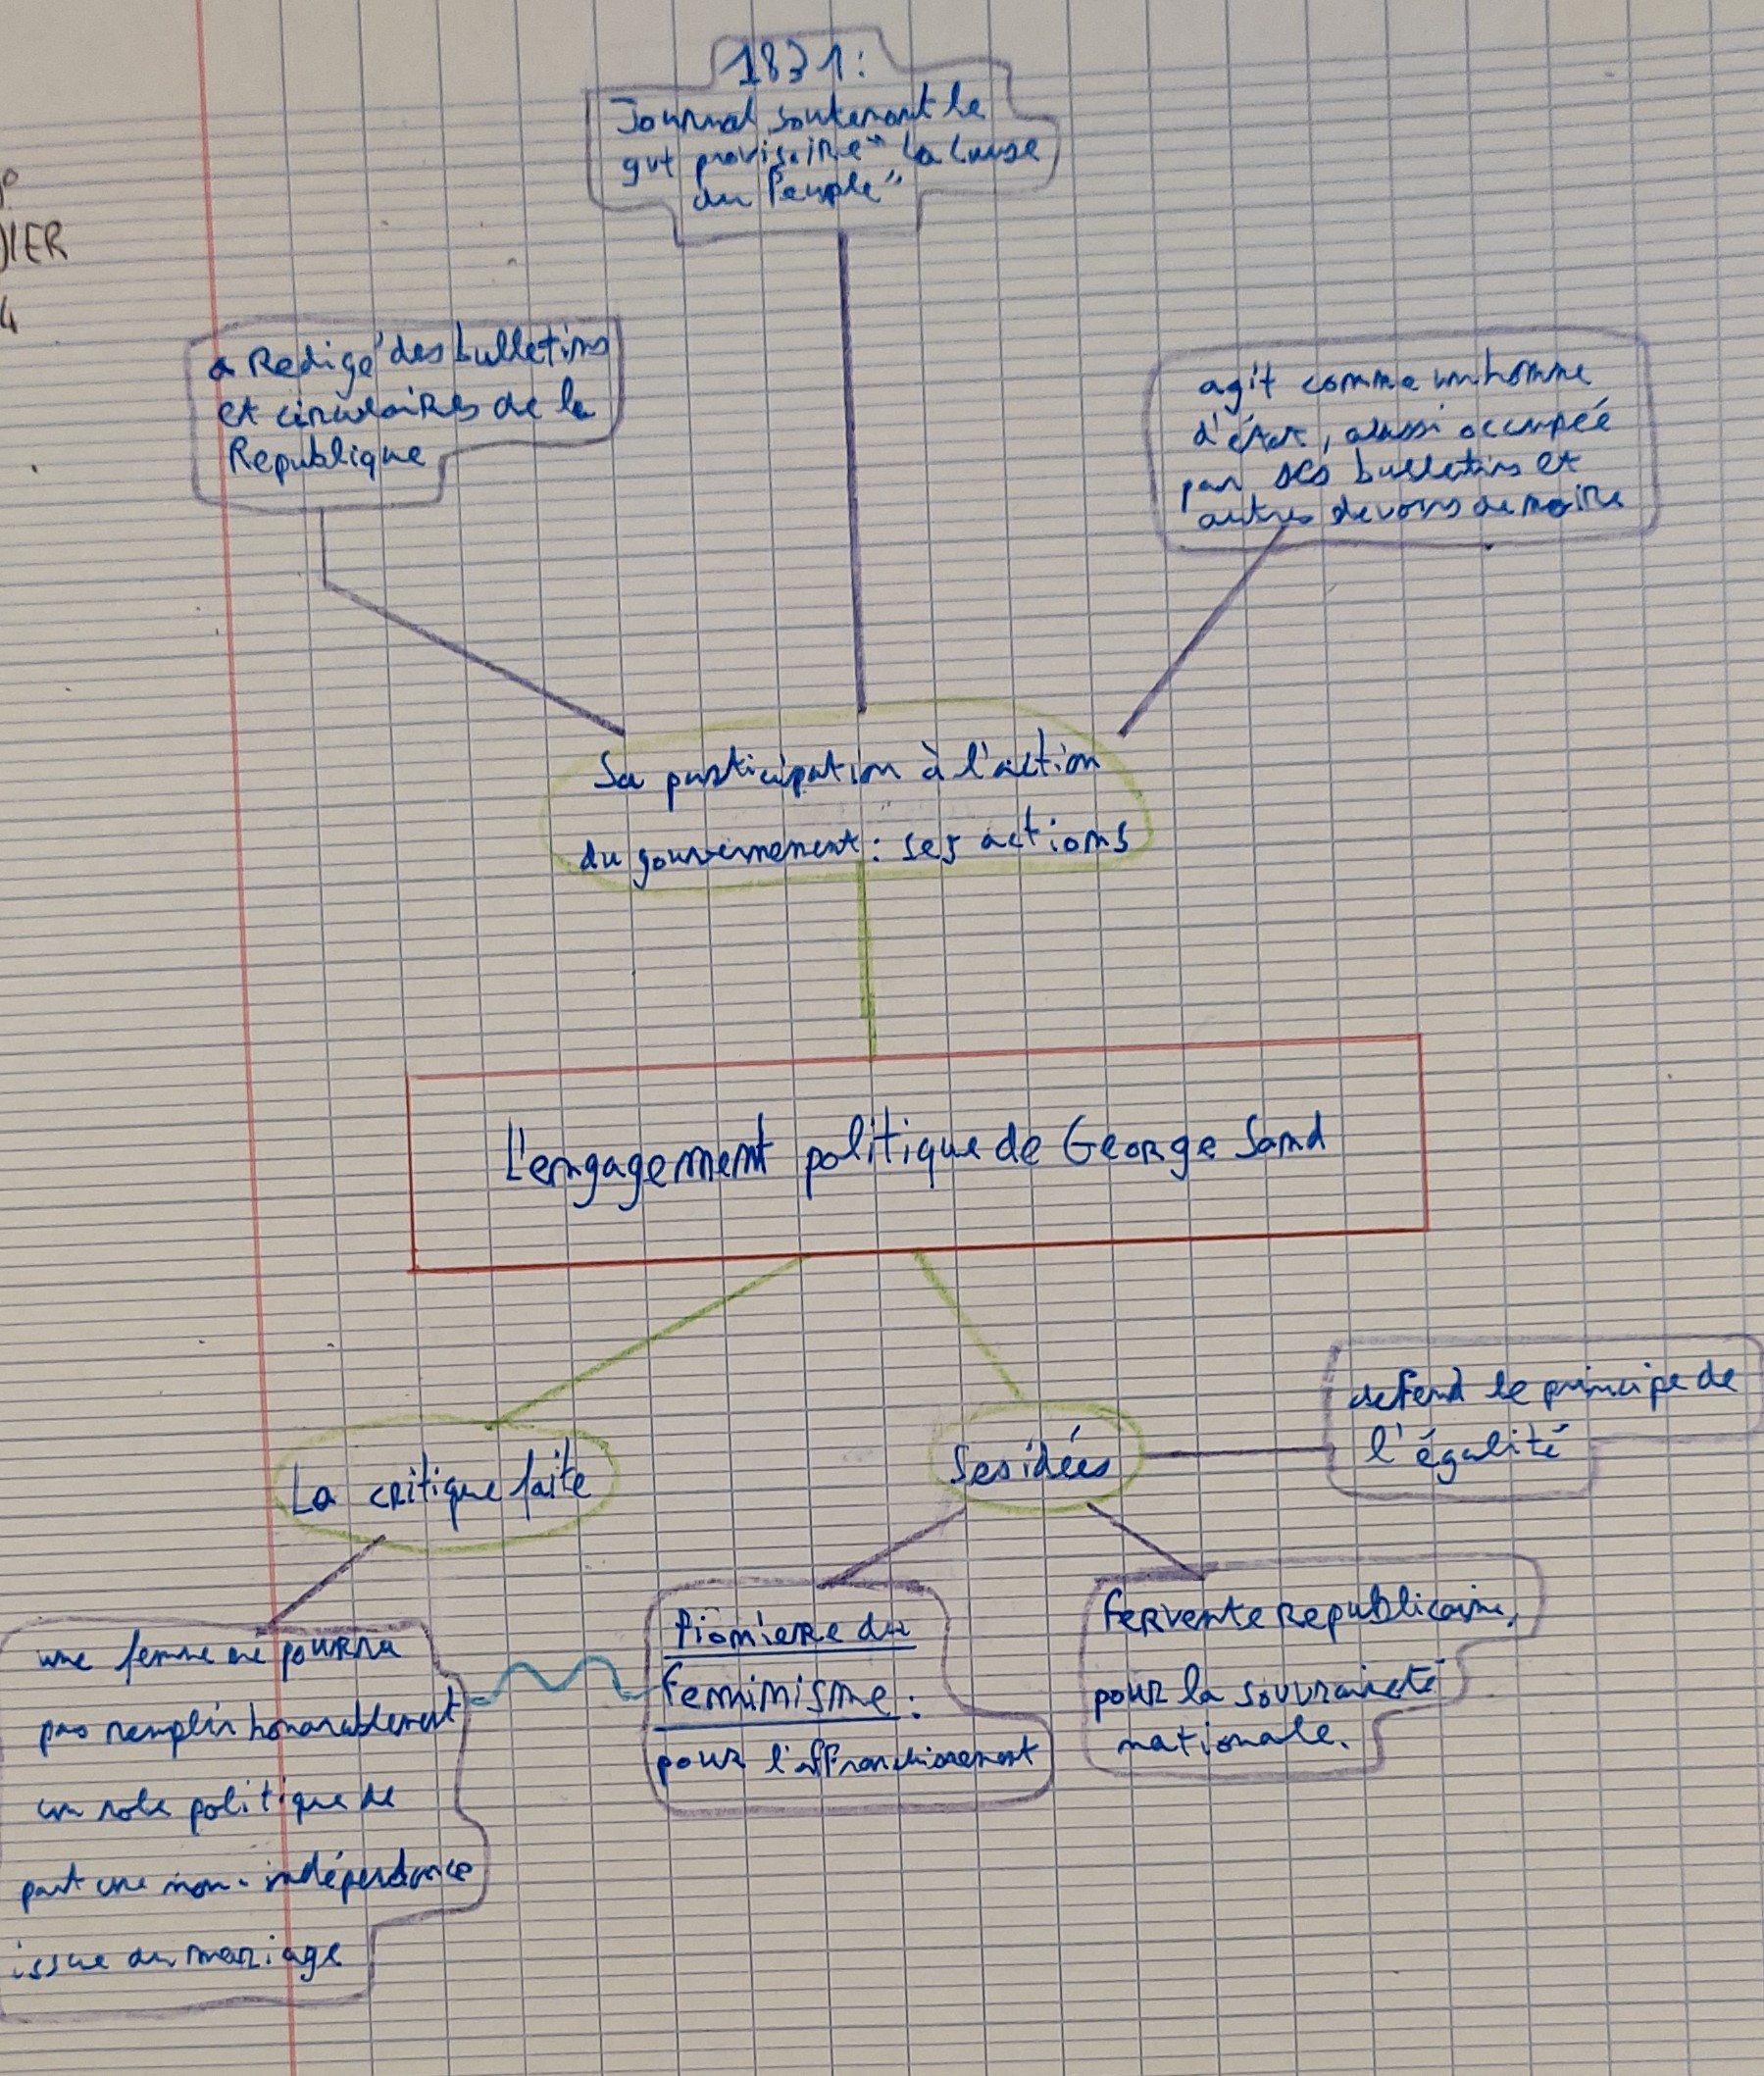 1831:
Journal soutenant le
gvt provisoire "La Cause
du Peuple"
DIER
4
a Redigé des bulletins
et circulaires de la
Republique
agit comme un homme
d'état, aussi occupéé
par ses bulletins et
autres devoirs de maire
Sa participation à l'action
du gouvernement : ses actions
L'engagement politique de George Sand
defend le principe de
l'égalité
La critique faite
Ses idées
une femme ne pourra
pas remplir honorablement
un role politique de
part une non-indépendance
issue du mariage
Pionniere du
feminisme :
pour l'affranchissement
fervente Republicaine,
pour la souvraineté
nationale.